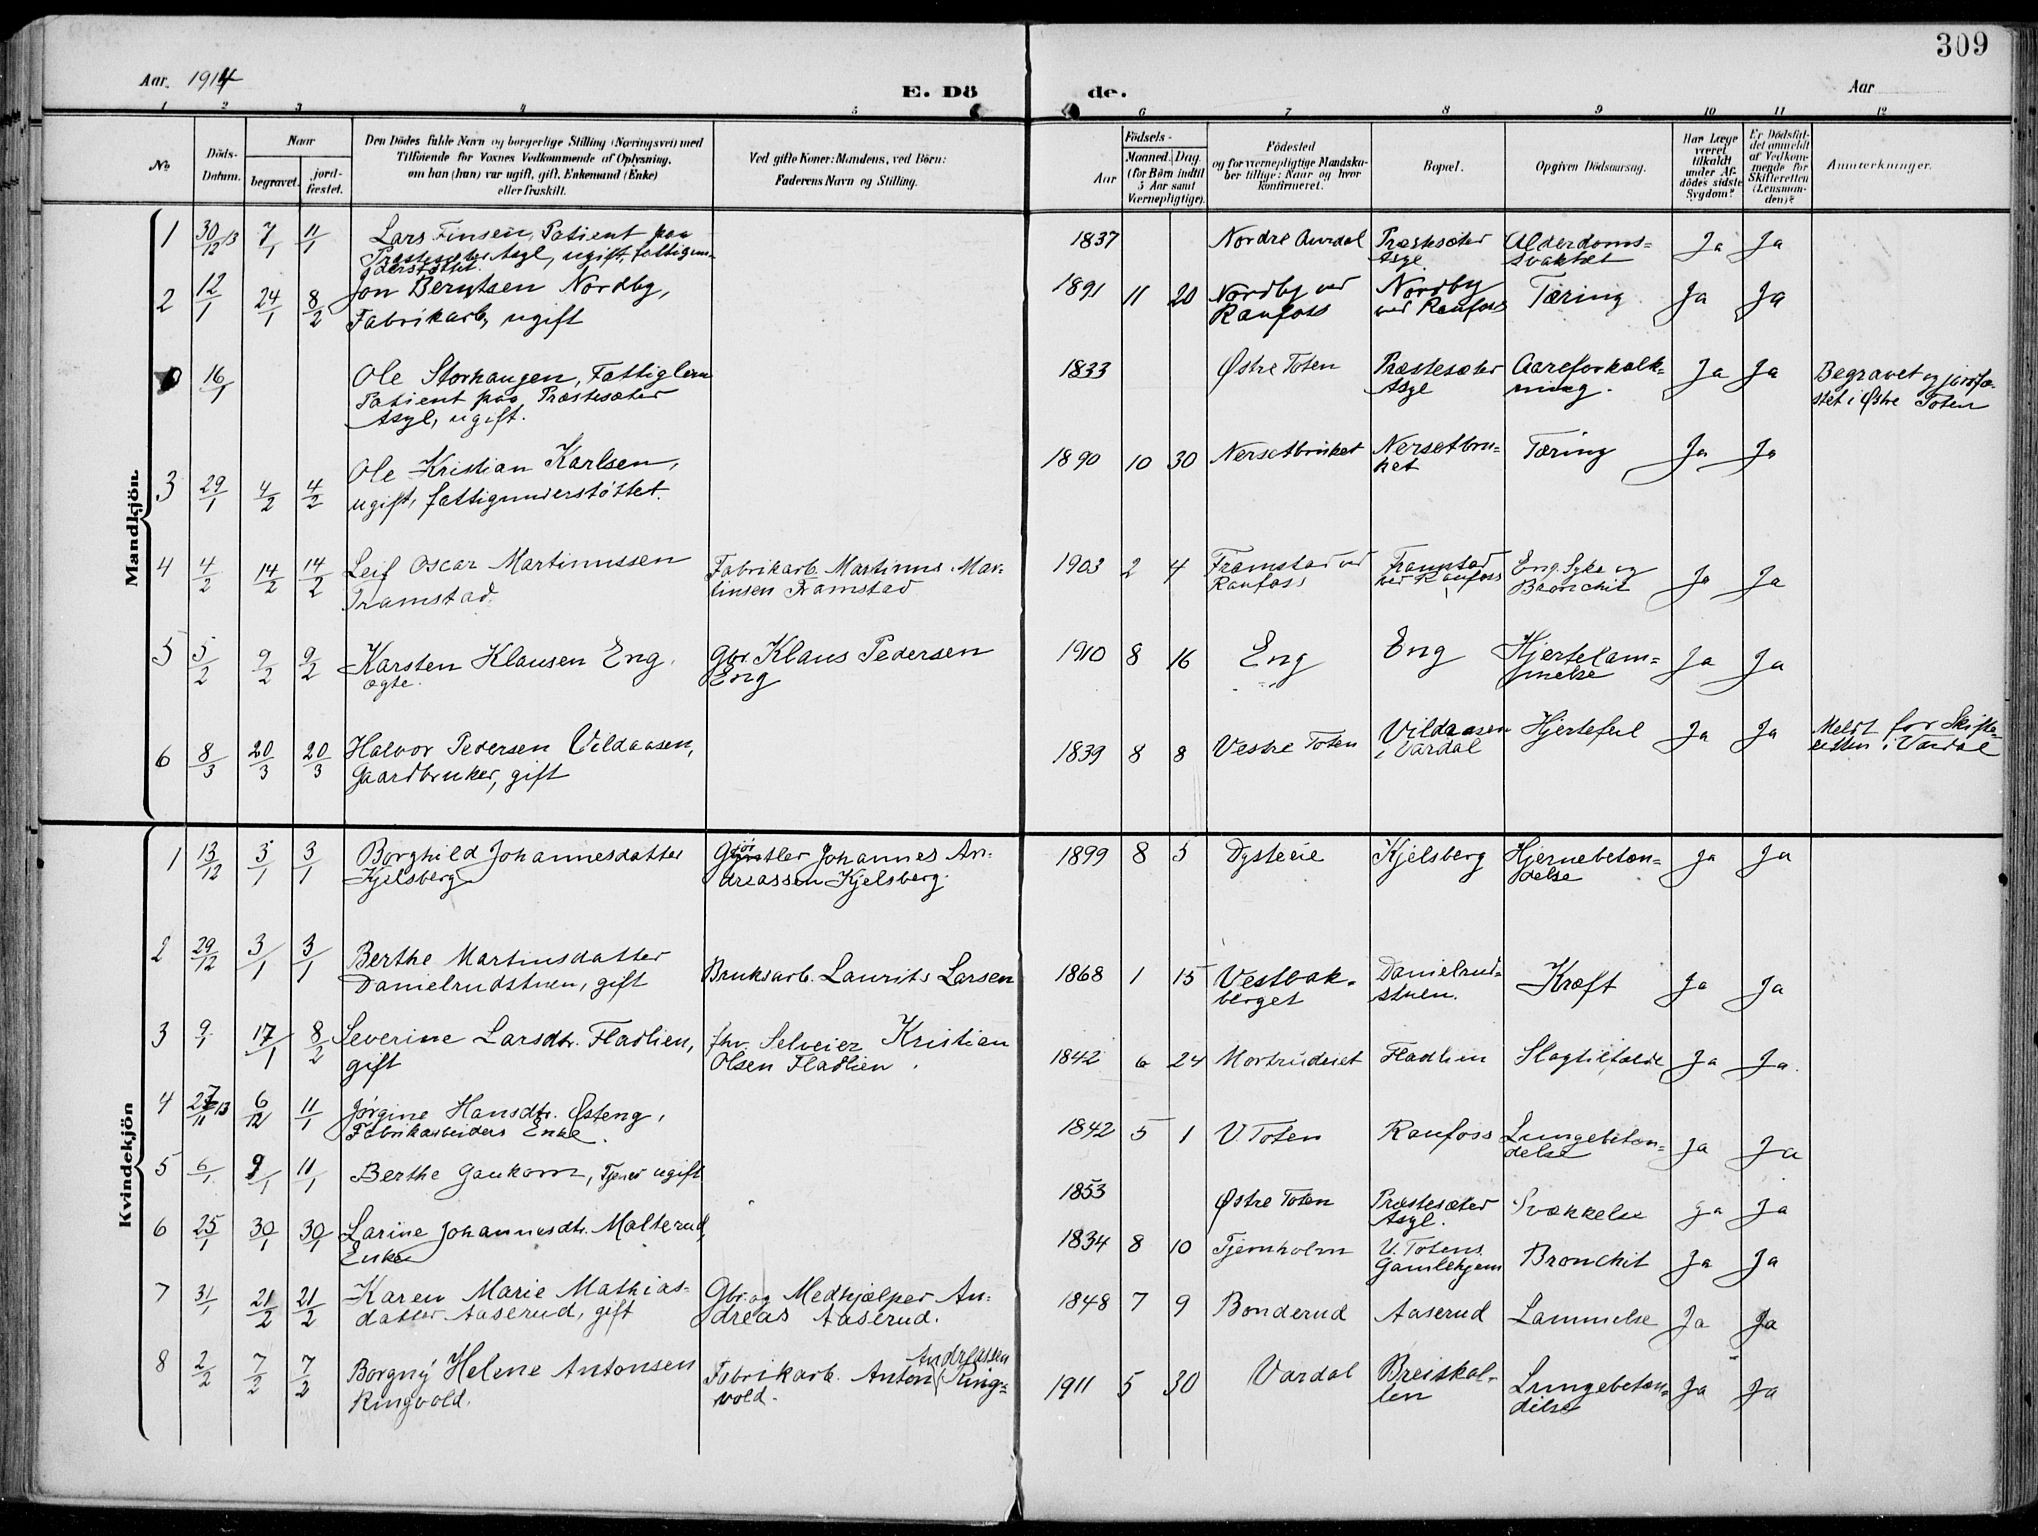 309
Aar. 1914
E. Dö de.
Aar
1 2 3 4 5 6 7 8 9 10 11 12
No
Döds-Datum.
Naar
begravet. jord-fæstet.
Den Dödes fulde Navn og borgerlige Stilling (Næringsvei) med
Tilföiende for Voxnes Vedkommende af Oplysning,
om han (hun) var ugift, gift, Enkemand (Enke)
eller fraskilt.
Ved gifte Koner: Mandens, ved Börn:
Faderens Navn og Stilling.
Födsels-
Aar
Maaned. Dag.
(for Börn indtil
5 Aar samt
Værnepligtige).
Födested
og for værnepligtige Mandska-
ber tillige: Naar og hvor
konfirmeret.
Bopæl.
Opgiven Dödsaarsag.
Har Læge
været
tilkaldt
under Af-
dödes sidste
Sygdom?
Er Dödsfal-
det anmeldt
af Vedkom-
mende for
Skifteretten
(Lensman-
den)?
Anmærkninger.
Mandkjön
1 30/12 13 7/1 11/1 Lars Finsen, Patient paa 1837 Nordre Aurdal Præstesæter Alderdoms= Ja Ja
Præstesæter Asyl, ugift, fattigun- Asyl svakhet
derstøttet.
2 12/1 24/1 8/2 Jon Berntsen Nordby, 1891 11 20 Nordby ved Nordby Tæring Ja Ja
Fabrikarb, ugift Raufoss ved Raufoss
0 16/1 Ole Storhaugen, Fattiglem 1833 Østre Toten Præstesæter Aareforkalk- Ja Ja Begravet og jordfæ-
Patient paa Præstesæter Asyl ning. stet i Østre Toten
Asyl, ugift.
3 29/1 4/2 4/2 Ole Kristian Karlsen, 1890 10 30 Nersetbruket Nersetbru- Tæring Ja Ja
ugift, fattigunderstøttet. ket
4 4/2 14/2 14/2 Leif Oscar Martinussen Fabrikarb. Martinus Mar- 1903 2 4 Framstad ved Framstad Eng. Syke og Ja Ja
Framstad. tinsen Framstad Raufoss ved Raufoss Bronchit
5 5/2 9/2 9/2 Karsten Klausen Eng, Gbr. Klaus Pedersen 1910 8 16 Eng Eng Hjertelam= Ja Ja
ægte. Eng melse
6 8/3 20/3 20/3 Halvor Pedersen Vildaasen, 1839 8 8 Vestre Toten Vildaasen Hjertefeil Ja Ja Meldt for Skifte-
Gaardbruker, gift i Vardal retten i Vardal
Kvindekjön
1 13/12 3/1 3/1 Borghild Johannesdatter Gjørtler Johannes An- 1899 8 5 Dysteeie Kjelsberg Hjernebetæn- Ja Ja
Kjelsberg dreassen Kjelsberg. delse
2 29/12 3/1 3/1 Berthe Martinsdatter Bruksarb. Laurits Larsen 1868 1 15 Vestbak- Danielrud- Kræft Ja Ja
Danielrudstuen, gift berget stuen.
3 9/1 17/1 8/2 Severine Larsdtr. Fladlien, fhv. Selveier Kristian 1842 6 24 Mortrudeiet Fladlien Slagtilfælde Ja Ja.
gift Olsen Fladlien
4 27/11 13 6/12 11/1 Jørgine Hansdtr. Østeng, 1842 5 1 V. Toten Raufoss Lungebetæn- Ja Ja
Fabrikarbeiders Enke. delse
5 6/1 9/1 11/1 Berthe Gaukom, Tjener ugift 1853 Østre Toten Præstesæter Svækkelse Ja Ja
Asyl.
6 25/1 30/1 30/1 Larine Johannesdtr. Malterud, 1834 8 10 Tjernholm V. Totens Bronchit Ja Ja
Enke Gamlehjem
7 31/1 21/2 21/2 Karen Marie Mathias- Gbr. og Medhjælper An- 1848 7 9 Bonderud Aaserud Lammelse Ja Ja
datter Aaserud, gift dreas Aaserud.
8 2/2 7/2 7/2 Borgny Helene Antonsen Fabrikarb. Anton Andreassen Ring= 1911 5 30 Vardal Breiskal- Lungebetæn- Ja Ja
Ringvold. vold. len delse